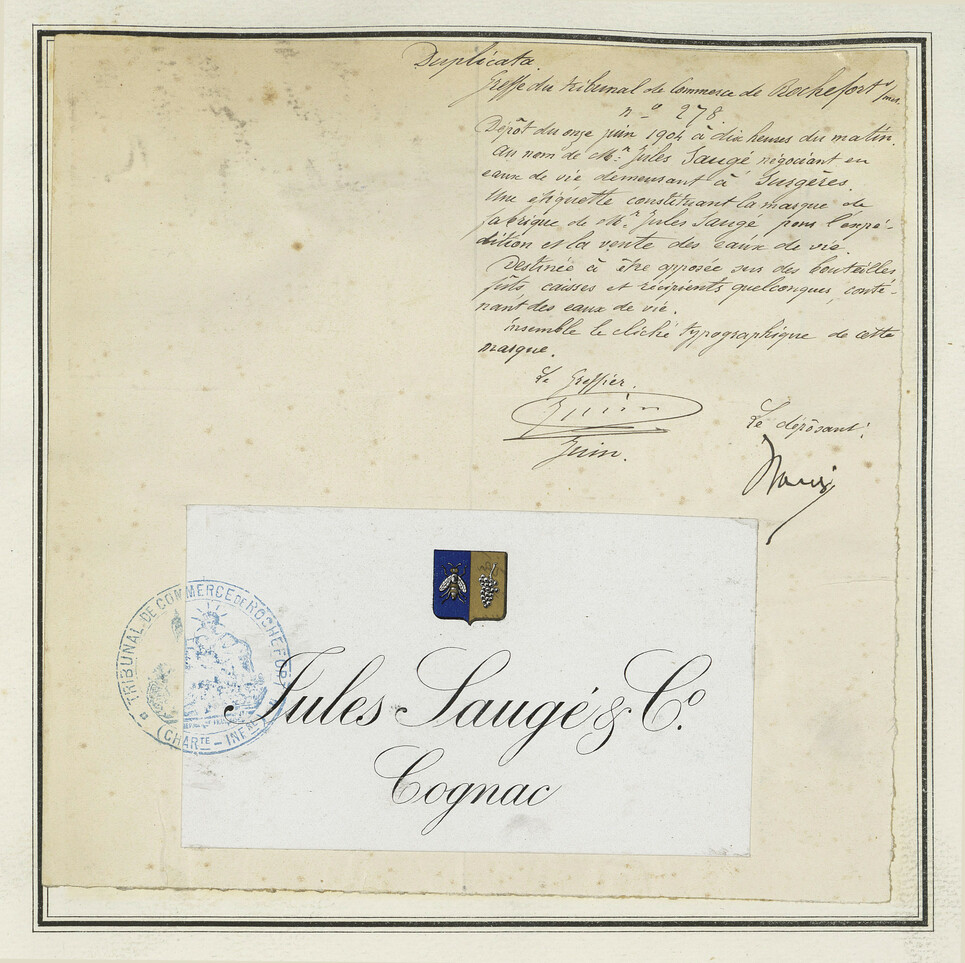 Duplicata
Greffe du tribunal de Commerce de Rochefort s/mer
n° 278
Dépôt du onze juin 1904 à dix heures du matin.
au nom de Mr. Jules Saugé négociant en
eaux de vie demeurant à Surgères.
Une étiquette constituant la marque de
fabrique de Mr. Jules Saugé pour l'expé-
dition et la vente des eaux de vie.
Destinée à être apposée sur des bouteilles
fûts caisses et récipients quelconques conte-
nant des eaux de vie.
ensemble le cliché typographique de cette
marque.
Le Greffier.
Juin
Juin.
Le déposant.
TRIBUNAL DE COMMERCE DE ROCHEFORT
(CHARTE-INF
Jules Saugé & Co.
Cognac